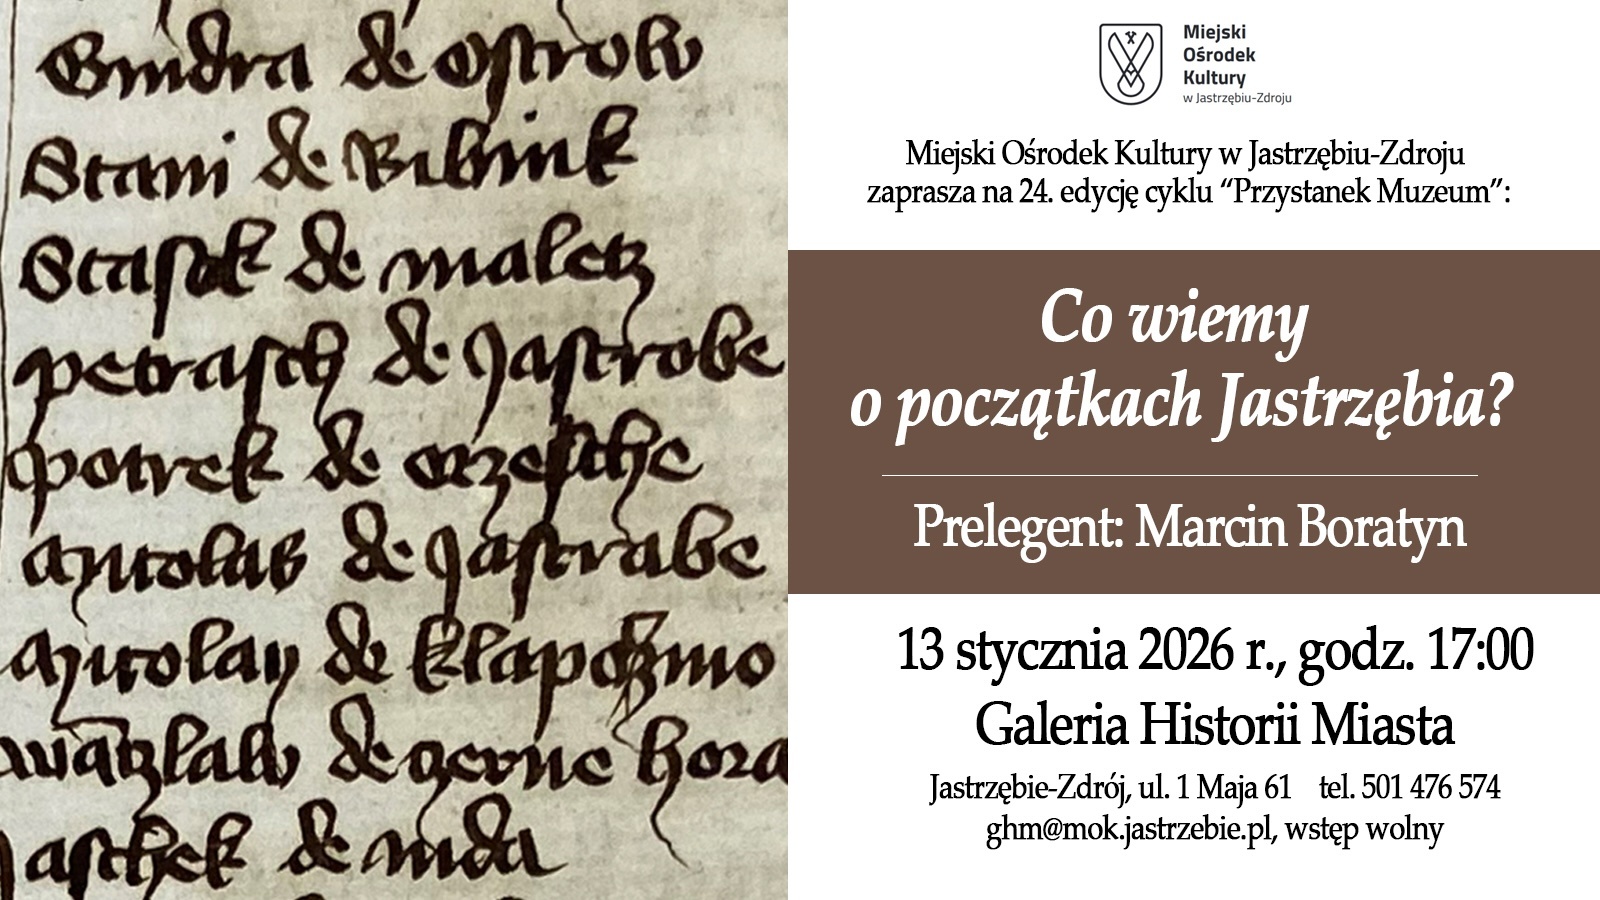 Gindra de Ostrow
Stani de Ribnik
Stasek de maletz
petrasch de Jastrobe
potrek de orzesche
de Jastrabe
de
de czerne hora
Jaschek de mda
Miejski
Ośrodek
Kultury
w Jastrzębiu-Zdroju
Miejski Ośrodek Kultury w Jastrzębiu-Zdroju
zaprasza na 24. edycję cyklu “Przystanek Muzeum”:
Co wiemy
o początkach Jastrzębia?
Prelegent: Marcin Boratyn
13 stycznia 2026 r., godz. 17:00
Galeria Historii Miasta
Jastrzębie-Zdrój, ul. 1 Maja 61 tel. 501 476 574
ghm@mok.jastrzebie.pl, wstęp wolny